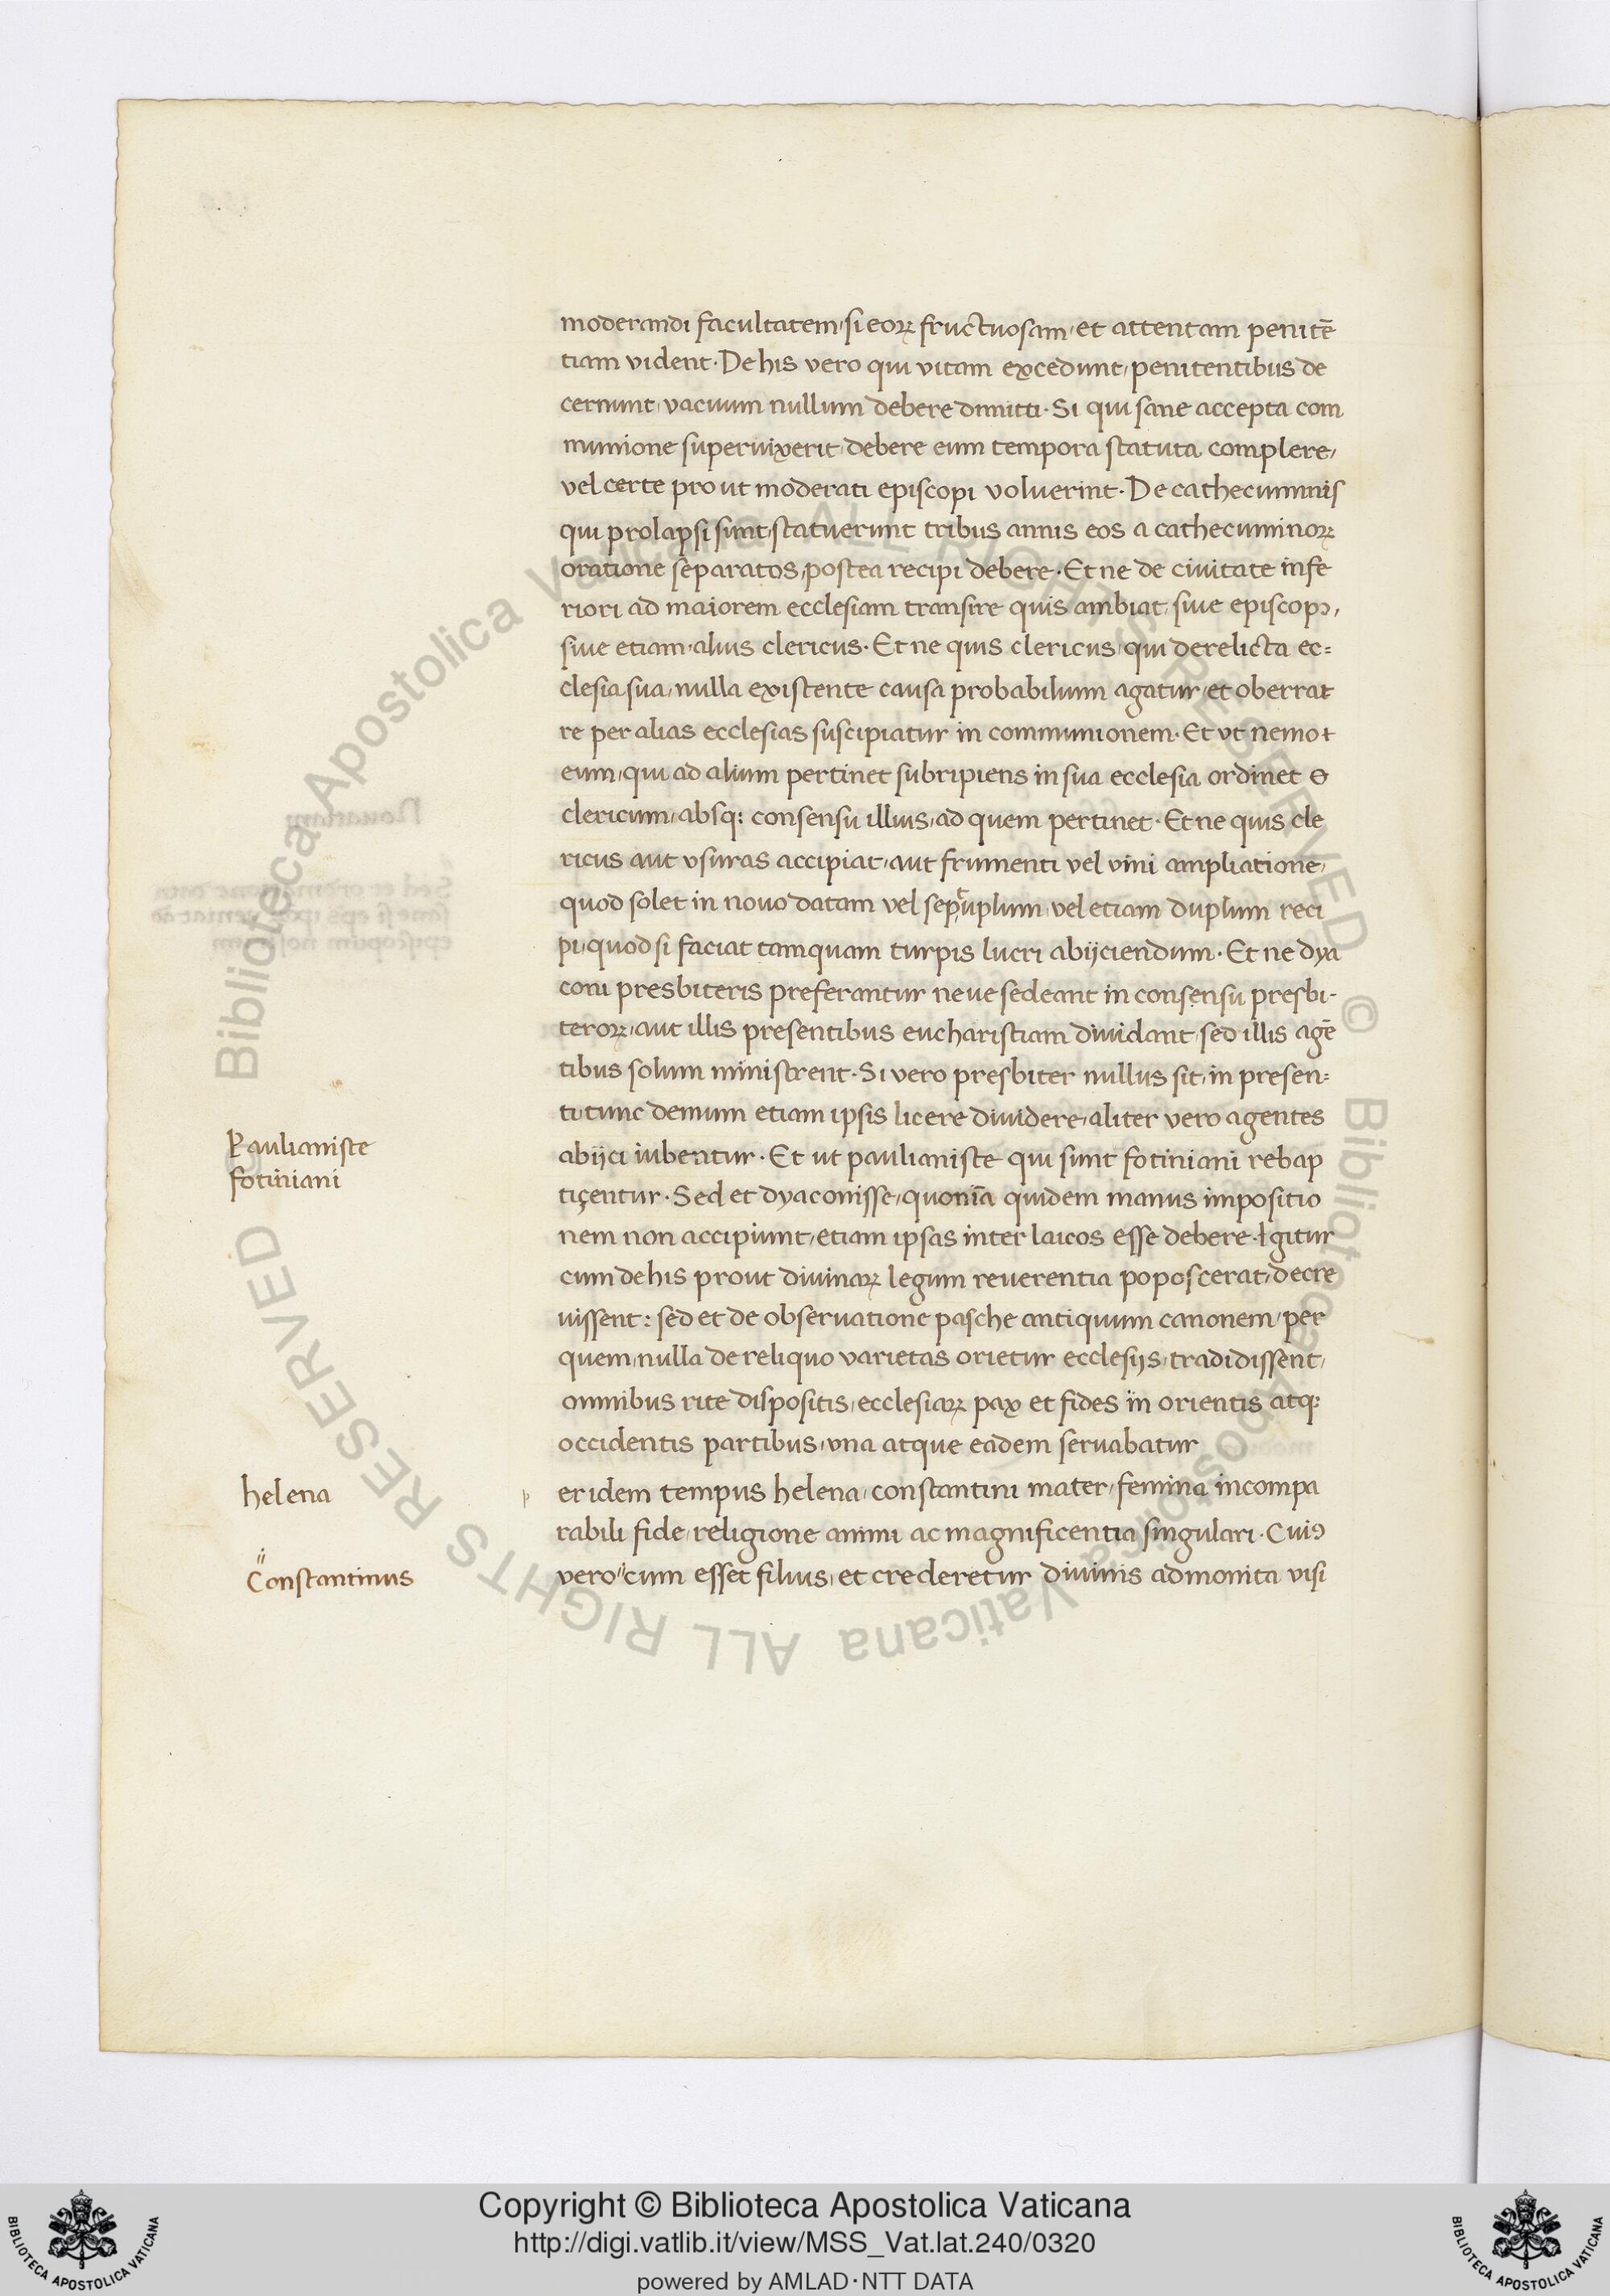 moderandi facultatem, si eoꝝ fructuosam, et attentam penitē
tiam vident. De his vero qui vitam excedunt, penitentibus de
cernunt, vacuum nullum debere dimitti. Si qui sane accepta com
munione supervixerit, debere eum tempora statuta complere,
vel certe prout moderati episcopi voluerint. De cathecuminis
qui prolapsi sunt, statuerunt tribus annis eos a cathecuminoꝝ
oratione separatos, postea recipi debere. Et ne de civitate infe
riori ad maiorem ecclesiam transire quis ambiat, sive episcopꝰ,
sive etiam alius clericus. Et ne quis clericus, qui derelicta ec=
clesia sua, nulla existente causa probabilium agatur, et oberrat
re per alias ecclesias suscipiatur in communionem. Et ut nemo
eum, qui ad alium pertinet subripiens in sua ecclesia ordinet
clericum, absq: consensu illius, ad quem pertinet. Et ne quis cle
ricus aut usuras accipiat, aut frumenti vel vini ampliatione,
quod solet in novo datam vel sep uplum, vel etiam duplum reci
pi, quod si faciat tamquam turpis lucri abijciendum. Et ne dya
coni presbiteris preferantur neue sedeant in consensu presbi-
teroꝝ, aut illis presentibus eucharistiam dividant, sed illis agē
tibus solum ministrent. Si vero presbiter nullus sit, in presen=
ti, tunc demum etiam ipsis licere dividere, aliter vero agentes
abijci iubentur. Et ut paulianiste qui sunt fotiniani rebap
tiçentur. Sed et dyaconisse, quonīa quidem manus impositio
nem non accipiunt, etiam ipsas inter laicos esse debere. Igitur
cum de his prout divinaꝝ legum reverentia poposcerat, decre
vissent: sed et de observatione pasche antiquum canonem, per
quem, nulla de reliquo varietas orietur ecclesijs, tradidissent,
omnibus rite dispositis, ecclesiaꝝ pax et fides in orientis atq:
occidentis partibus, una atque eadem servabatur
Paulianiste
fotiniani
p er idem tempus helena, constantini mater, femina incompa
rabili fide, religione animi ac magnificentia singulari. Cuiꝰ
vero cum esset filius, et crederetur divinis admonita visi
helena
Constantinus
Copyright © Biblioteca Apostolica Vaticana
http://digi.vatlib.it/view/MSS_Vat.lat.240/0320
powered by AMLAD · NTT DATA
BIBLIOTECA APOSTOLICA VATICANA
BIBLIOTECA APOSTOLICA VATICANA
© Biblioteca Apostolica Vaticana ALL RIGHTS RESERVED
© Biblioteca Apostolica Vaticana ALL RIGHTS RESERVED